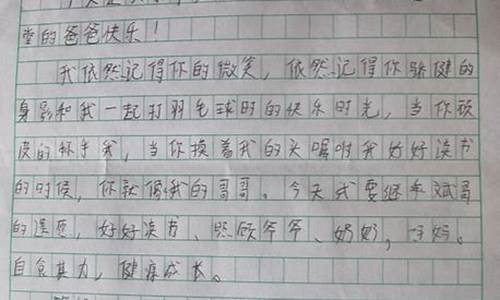 堂的爸爸快乐！
我依然记得你的微笑，依然记得你矫健的
身影和我一起打羽毛球时的快乐时光，当你顽
皮的 我，当你摸着我的头嘱咐我好好读书
的时候，你就像我的哥哥。今天我要继承 哥
的遗愿，好好读书、照顾爷爷、奶奶， 妈。
自食其力，健康成长。